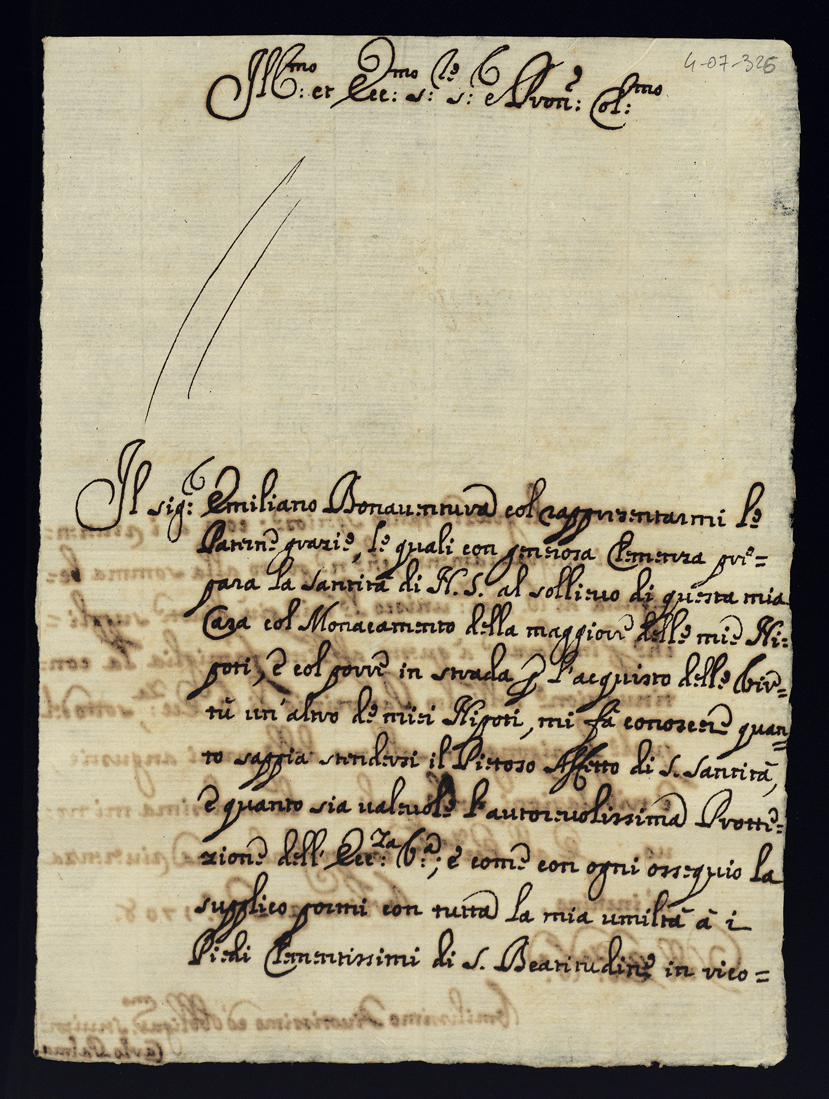 4-07-326
Ill.mo et Ecc.mo S.re S.r e Pron.e Col.mo
Il sig.r Emiliano Bonaventura col rappresentarmi le
Paterne grazie, le quali con generosa Clemenza pre=
gara la Santità di N. S. al sollievo di questa mia
Casa col Monacamento della maggiore delle mie Ni=
poti, e col porre in strada p l'acquisto delle Vir=
tù un'altro de miei Nipoti, mi fà conoscere quan=
to sappia stendersi il Pietoso Affetto di S. Santità,
e quanto sia valevole l'autorevolissima Protte=
zione dell'Ecc.za V.a; e come con ogni ossequio la
supplico pormi con tutta la mia umiltà à i
Piedi Clementissimi di S. Beatitudine in rico=